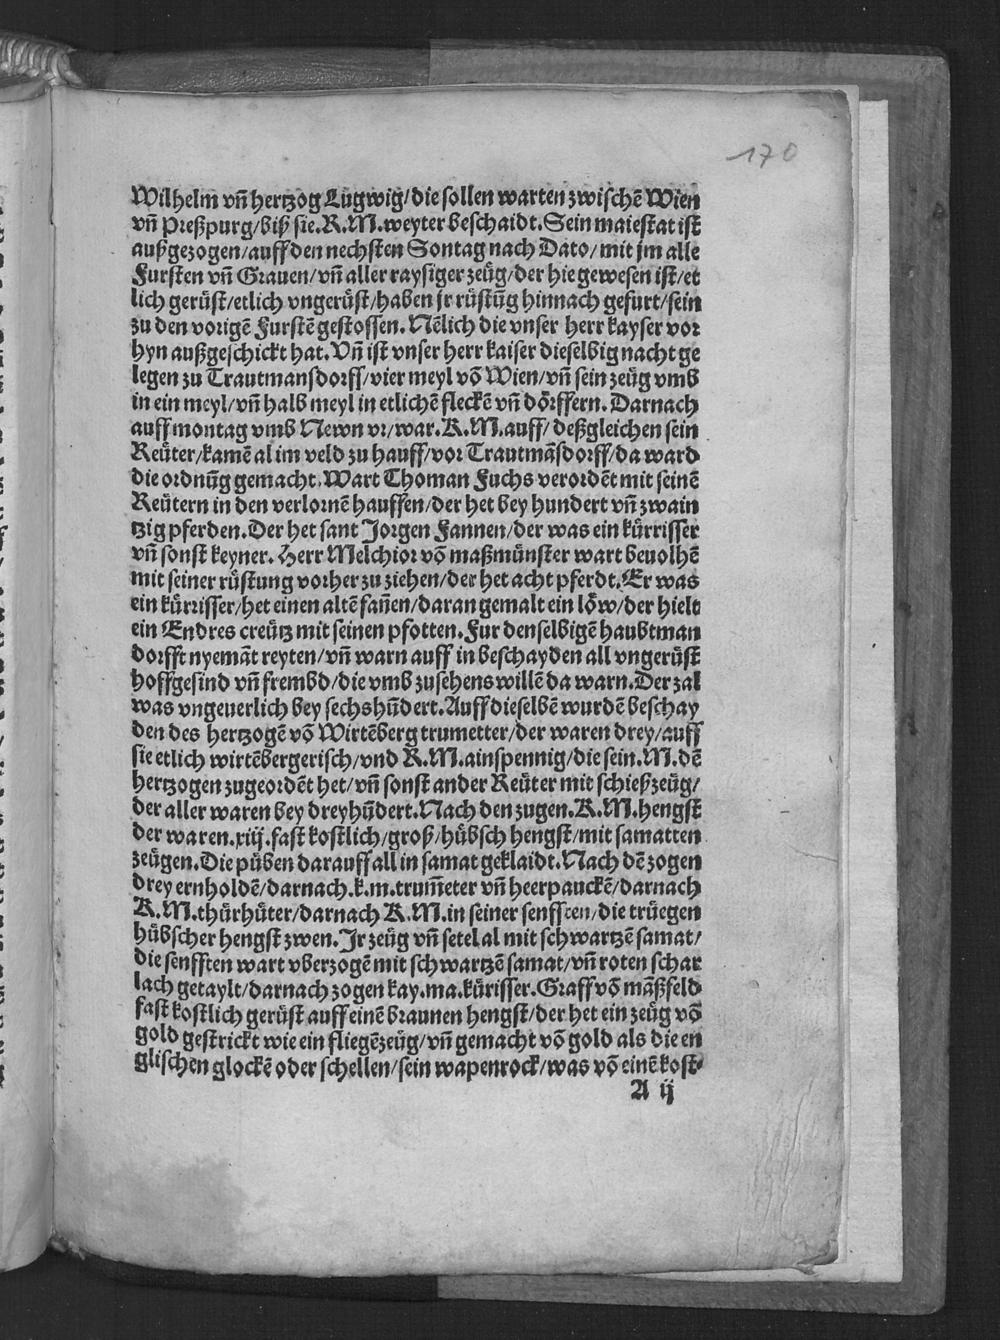 170
Wilhelm vñ hertzog Lůgwig/die sollen warten zwischẽ Wien
vñ Preßpurg/biß sie.K.M.weyter beschaidt.Sein maiestat ist
außgezogen/auff den nechsten Sontag nach Dato/mit jm alle
Fursten vñ Grauen/vñ aller raysiger zeüg/der hie gewesen ist/et
lich gerüst/etlich vngerüst/haben jr rüstũg hinnach gefurt/sein
zu den vorigẽ Furstẽ gestossen.Nẽlich die vnser herr kayser vor
hyn außgeschickt hat.Vñ ist vnser herr kaiser dieselbig nacht ge
legen zu Trautmansdorff/vier meyl võ Wien/vñ sein zeüg vmb
in ein meyl/vñ halb meyl in etlichẽ fleckẽ vñ dörffern.Darnach
auff montag vmb Newn vr/war.K.M.auff/deßgleichen sein
Reüter/kamẽ al im veld zu hauff/vor Trautmãsdorff/da ward
die ordnũg gemacht.Wart Thoman Fuchs verordẽt mit seinẽ
Reütern in den verlornẽ hauffen/der het bey hundert vñ zwain
tzig pferden.Der het sant Jorgen Fannen/der was ein kürrisser
vñ sonst keyner.Herr Melchior võ maßmünster wart beuolhẽ
mit seiner rüstung vorher zu ziehen/der het acht pferdt.Er was
ein kürrisser/het einen altẽ fañen/daran gemalt ein löw/der hielt
ein Endres creütz mit seinen pfotten.Fur denselbigẽ haubtman
dorfft nyemãt reyten/vñ warn auff in beschayden all vngerüst
hoffgesind vñ frembd/die vmb zusehens willẽ da warn.Der zal
was vngeuerlich bey sechshũdert.Auff dieselbẽ wurdẽ beschay
den des hertzogẽ võ Wirtẽberg trumetter/der waren drey/auff
sie etlich wirtẽbergerisch/vnd K.M.ainspennig/die sein.M.dẽ
hertzogen zugeordẽt het/vñ sonst ander Reüter mit schießzeüg/
der aller waren bey dreyhũdert.Nach den zugen.K.M.hengst
der waren.xiij.fast kostlich/groß/hübsch hengst/mit samatten
zeügen.Die püben darauff all in samat geklaidt.Nach dẽ zogen
drey ernholdẽ/darnach.k.m.trum̃eter vñ heerpauckẽ/darnach
K.M.thürhüter/darnach K.M.in seiner senfften/die trüegen
hübscher hengst zwen.Jr zeüg vñ setel al mit schwartzẽ samat/
die senfften wart vberzogẽ mit schwartzẽ samat/vñ roten schar
lach getaylt/darnach zogen kay.ma.kürisser.Graff võ mãßfeld
fast kostlich gerüst auff einẽ braunen hengst/der het ein zeüg võ
gold gestrickt wie ein fliegẽzeüg/vñ gemacht võ gold als die en
glischen glockẽ oder schellen/sein wapenrock/was võ einẽ kost⸗
A ij